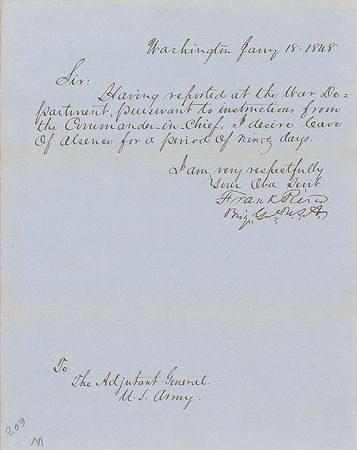 Washington Jany 18. 1848
Sir:
Having reported at the War De=
partment, pursuant to instructions from
the Commander-in-Chief, I desire leave
of absence for a period of ninety days.
I am, very respectfully
Your Obd Servt
Frank Pierce
Brig. Gl. U.S.A.
To
The Adjutant General.
U. S. Army.
203
M